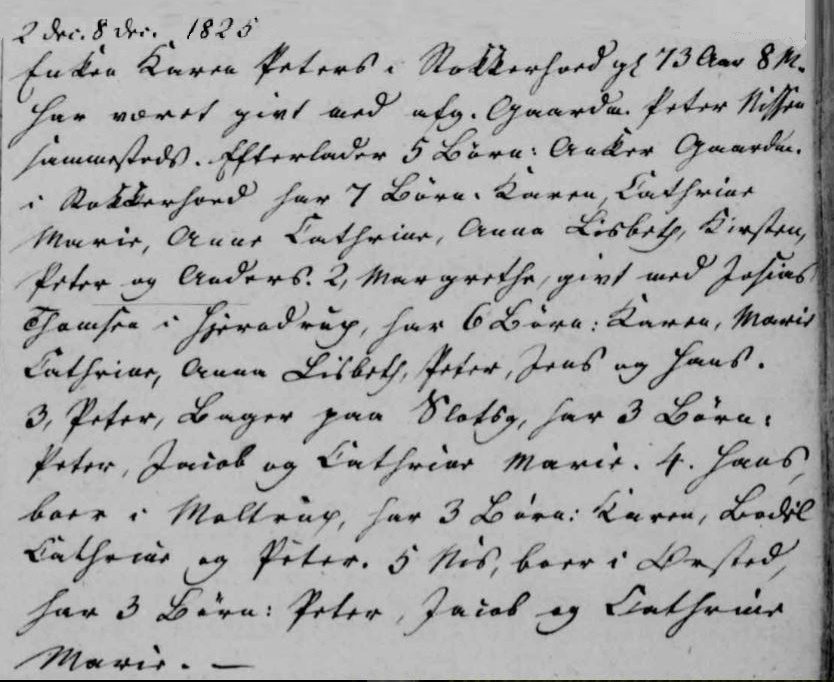 2 dec. 8 dec. 1825
Enken Karen Peters i Stokkerhoed gl 73 Aar 8 M.
har været givt med afg. Gaardm. Peter Nissen
sammesteds. Efterlader 5 Børn: Anker Gaardm.
i Stokkerhoed har 7 Børn. Karen, Cathrine
Marie, Anne Cathrine, Anna Lisbeth, Kirsten,
Peter og Anders. 2, Margrethe, givt med Josias
Thomsen i Hjerndrup, har 6 Børn: Karen, Marie
Cathrine, Anna Lisbeth, Peter, Jens og Hans.
3, Peter, Bager paa Slotsg, har 3 Børn:
Peter, Jacob og Cathrine Marie. 4. Hans,
boer i Moltrup, har 3 Børn: Karen, Bodil
Cathrine og Peter. 5 Nis, boer i Ørsted,
har 3 Børn: Peter, Jacob og Cathrine
Marie. —